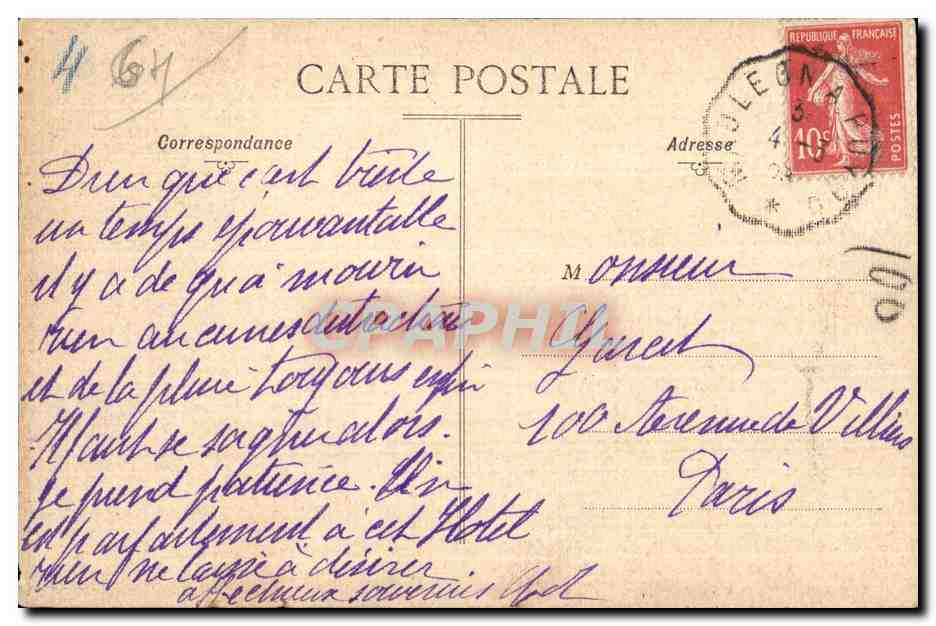 4 64
CARTE POSTALE
Correspondance
Adresse
REPUBLIQUE FRANÇAISE
10c
POSTES
100
Dieu que c'est triste
un temps épouvantable
il y a de quoi mourir
rien aucunes
et de la pluie toujours enfin
Il faut se alors.
je prend patience.
est parfaitement à cet Hotel
rien ne laisse à désirer.
affectueux souvenirs
Monsieur
Garcet
100 Avenue de Villiers
Paris
CPAPHIL